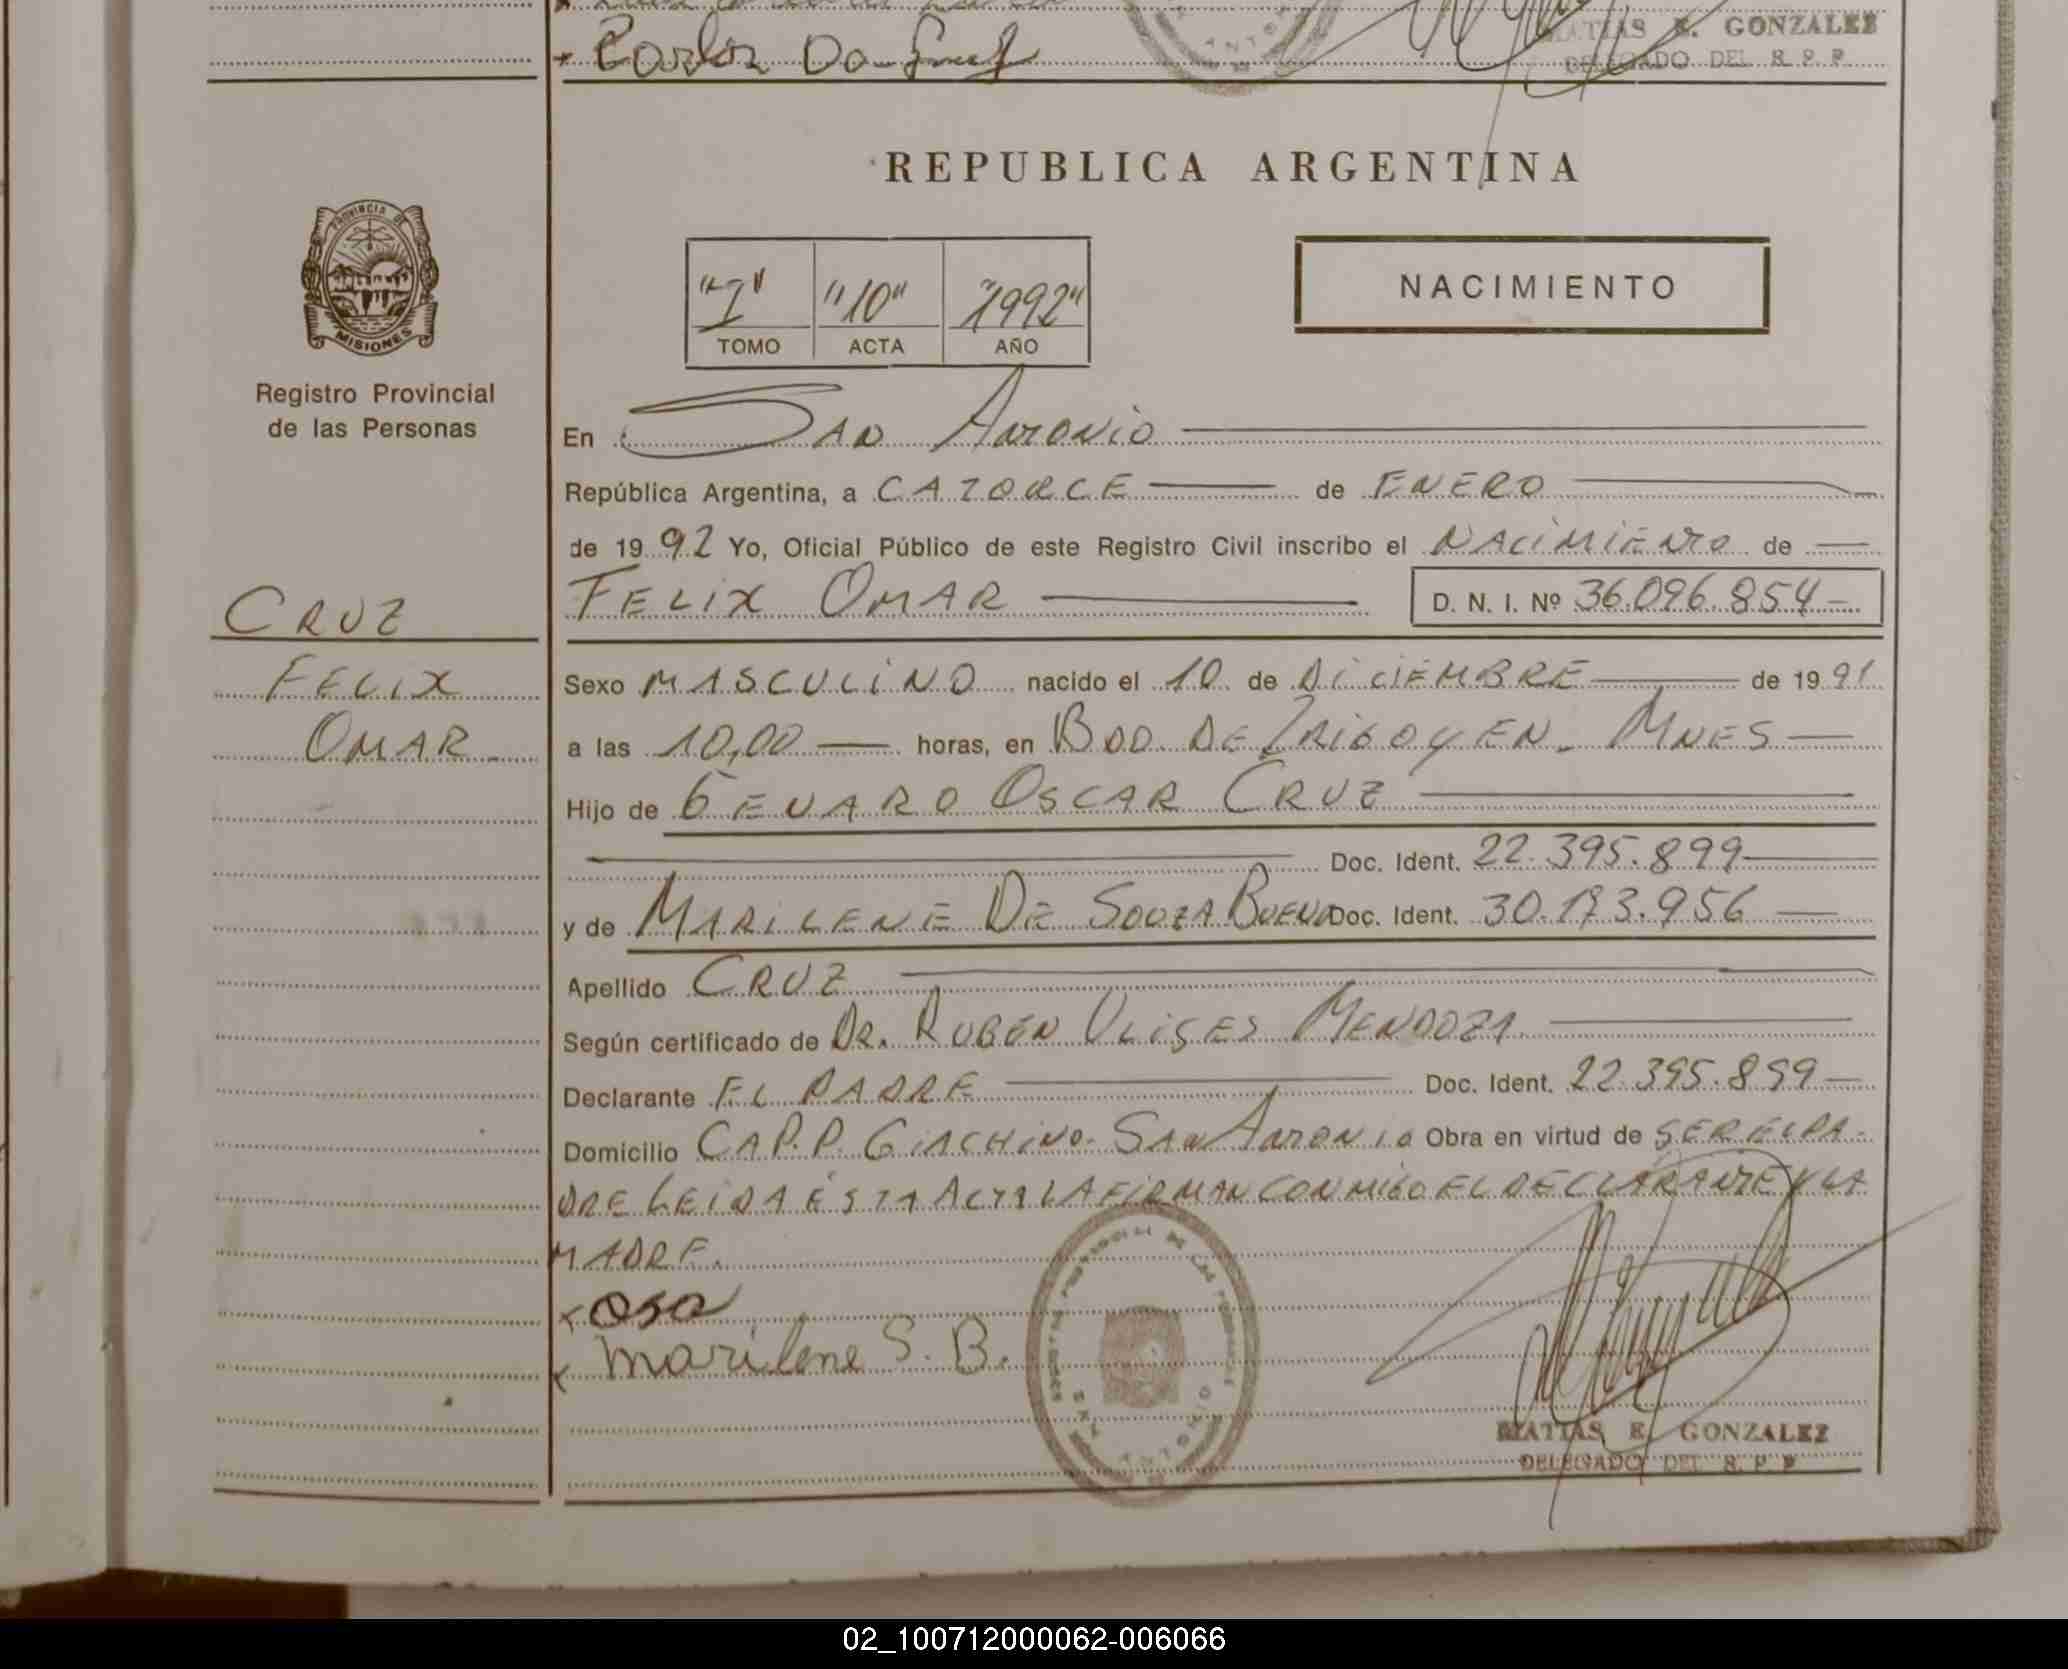 Carlos Da
MATIAS E. GONZALEZ
DELEGADO DEL R. P. P.
REPUBLICA ARGENTINA
PROVINCIA DE
MISIONES
Registro Provincial
de las Personas
"I" "10" "1992"
TOMO ACTA AÑO
NACIMIENTO
En SAN ANTONIO
República Argentina, a CATORCE de ENERO
de 1992 Yo, Oficial Público de este Registro Civil inscribo el NACIMIENTO de
FELIX OMAR D. N. I. Nº 36.096.854
CRUZ
FELIX
OMAR
Sexo MASCULINO nacido el 10 de DICIEMBRE de 1991
a las 10,00 horas, en BDO. DE IRIGOYEN - MNES
Hijo de GENARO OSCAR CRUZ
Doc. Ident. 22.395.899
y de MARILENE DE SOUZA BUENO Doc. Ident. 30.193.956
Apellido CRUZ
Según certificado de DR. RUBÉN ULISES MENDOZA
Declarante EL PADRE Doc. Ident. 22.395.899
Domicilio CAP. P. GIACHINO - SAN ANTONIO Obra en virtud de SER EL PA-
DRE LEIDA ÉSTA ACTA LA FIRMAN CONMIGO EL DECLARANTE Y LA
MADRE.
x
x Marilene S. B.
SAN ANTONIO
MATIAS E. GONZALEZ
DELEGADO DEL R. P. P.
02_100712000062-006066